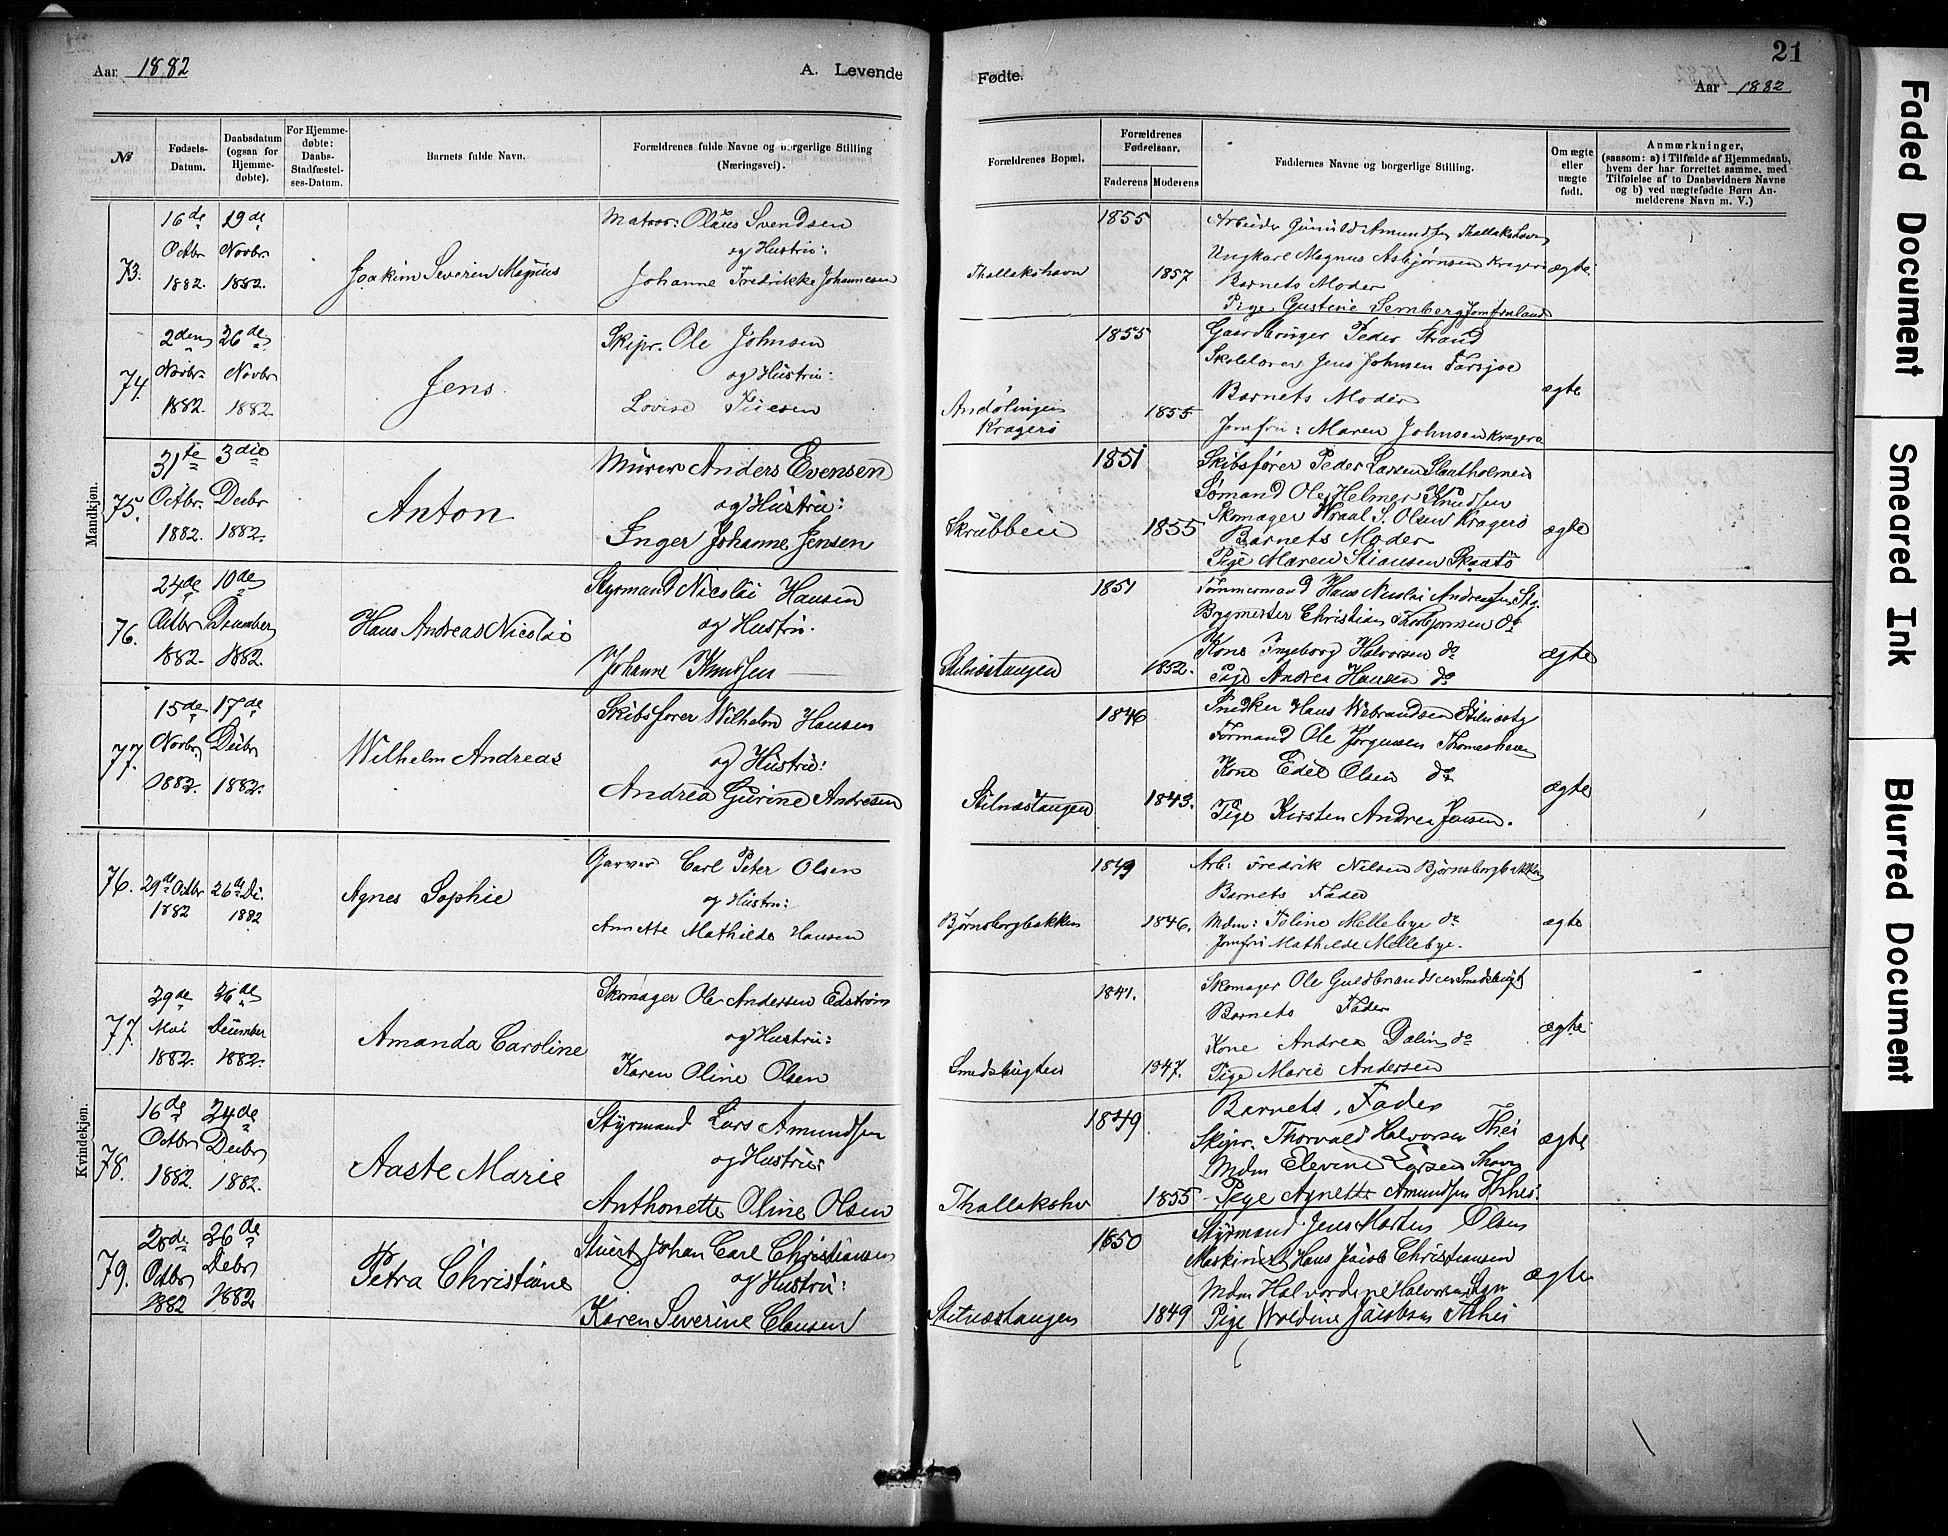 Aar 1882
A. Levende
Fødte.
21
Aar 1882
№
Fødsels-
Datum.
Daabsdatum
(ogsaa for
Hjemme-
døbte).
For Hjemme-
døbte:
Daabs-
Stadfæstel-
ses-Datum.
Barnets fulde Navn.
Forældrenes fulde Navne og borgerlige Stilling
(Næringsvei).
Forældrenes Bopæl.
Forældrenes
Fødselsaar.
Faderens
Moderens
Faddernes Navne og borgerlige Stilling.
Om ægte
eller
uægte
født.
Anmærkninger,
(saasom: a) i Tilfælde af Hjemmedaab,
hvem der har forrettet samme, med
Tilføielse af to Daabsvidners Navne
og b) ved uægtefødte Børn An-
melderens Navn m. V.)
Mandkjøn.
73.
16de
Octbr
1882.
19de
Novbr
1882.
Joakim Severin Magnus
Matros: Olaus Svendsen
og Hustru:
Johanne Fredrikke Johannesen
Thallakshavn
1855
1857
Arbeider Amundsen Thallakshavn
Ungkarl Magnus Asbjørnsen Kragerø
Barnets Moder
Pige Gustine Jomfruland
ægte
74.
2den
Novbr
1882.
26de
Novbr
1882
Jens
Skipr. Ole Johnsen
og Hustru:
Lovise
Kragerø
1855
1855
Gaardbruger Peder Strand
Skolelærer Jens Johnsen Farsjøe
Barnets Moder
Jomfru: Maren Johnsen Kragerø
ægte
75.
31te
Octbr
1882.
3die
Decbr
1882.
Anton
Murer Anders Evensen
og Hustru:
Inger Johanne Jensen
Skrubben
1851
1855
Skibsfører Peder Larsen
Sømand Ole Helmer Knudsen
Skomager Wraal S. Olsen Kragerø
Barnets Moder
Pige Maren Stiansen Skaatø
ægte
76.
24de
Octbr
1882.
10de
December
1882.
Hans Andreas Nicolai
Styrmand Nicolai Hansen
og Hustru.
Johanne Knudsen
Stilnæstangen
1851
1852.
Tømmermand Hans Nicolai Andreassen Stg.
Brygmester Christian Thorbjørnsen do
Kone Ingeborg Halvorsen do
Pige Andrea Hansen do
ægte
77.
15de
Novbr
1882.
17de
Decbr
1882.
Wilhelm Andreas
Skibsfører Wilhelm Hansen
og Hustru:
Andrea Gurine Andresen
Stilnæstangen
1846
1843.
Snedker Hans Webrandsen Stilnæstg
Formand Ole Jørgensen
Kone Edel Olsen do
Pige Kirsten Andrea Jensen.
ægte
Kvindekjøn.
76.
29de Octbr
1882
26de De.
1882
Agnes Sophie
Garver Carl Peter Olsen
og Hustru:
Annette Mathilde Hansen
Bjørnsborgbakken
1849
1846.
Arb: Fredrik Nilsen Bjørnsborgbakken
Barnets Fader
Mdm: Toline Mellebye do
Jomfru Mathilde Mellebye.
ægte
77.
29de
Mai
1882.
26de
December
1882.
Amanda Caroline
Skomager Ole Andersen Edstrøm
og Hustru:
Karen Oline Olsen
Smedsbugten
1841.
1847.
Skomager Ole Guldbrandsen Smedsbugt
Barnets Fader
Kone Andrea Dalin do
Pige Marie Andersen
ægte
78.
16de
Octbr
1882.
24de
Decbr
1882.
Aaste Marie
Styrmand Lars Amundsen
og Hustru:
Anthonette Oline Olsen
Thallakshv
1849
1855
Barnets Fader
Skipr. Thorvald Halvorsen
Mdm Elevine Larsen
Pige Agnette Amundsen
ægte
79.
Octbr
1882
26de
Debr
1882
Petra Christine
Stuert Johan Carl Christiansen
og Hustru:
Karen Severine Clausen
Stilnæstangen
1850
1849
Styrmand Jens Morten Olsen
Maskinist Hans Jacob Christiansen
Mdm Halvordine Halvorsen
Pige Woldine Jacobsen
ægte
Faded Document
Smeared Ink
Blurred Document